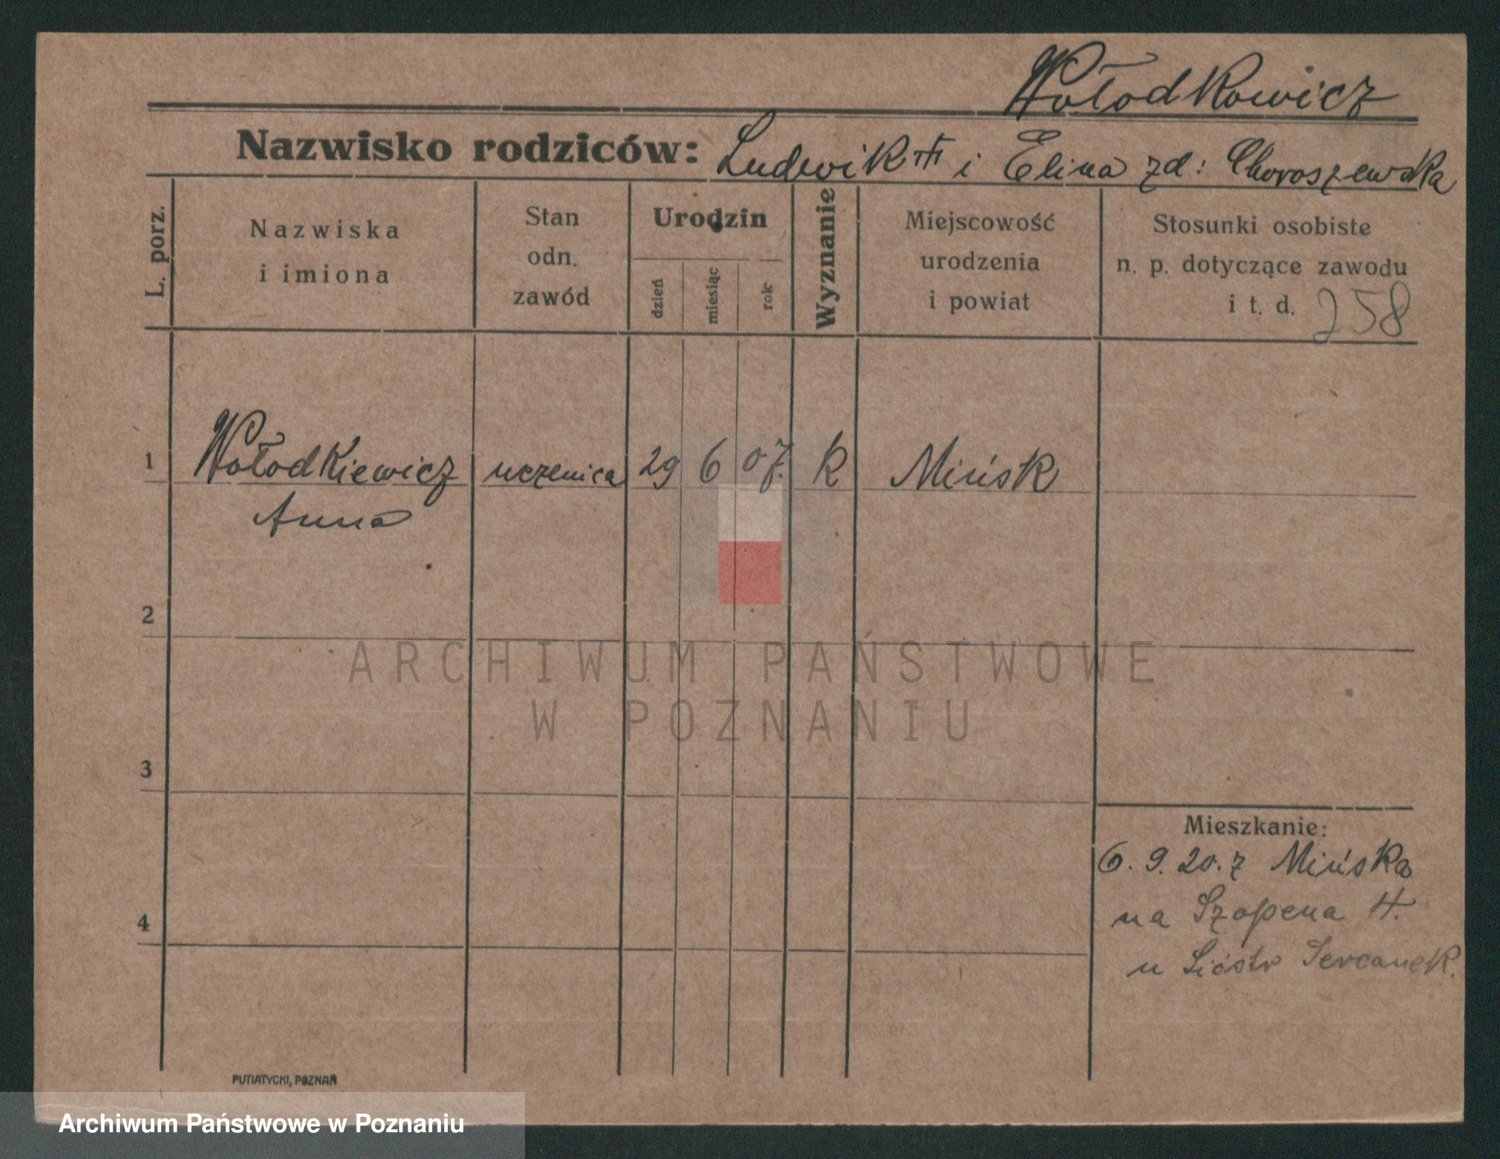 Wołodkowicz
Nazwisko rodziców: Ludwik i Elina zd: Choroszewska
L. porz.
Nazwiska
i imiona
Stan
odn.
zawód
Urodzin
dzień
miesiąc
rok
Wyznanie
Miejscowość
urodzenia
i powiat
Stosunki osobiste
n. p. dotyczące zawodu
i t. d. 258
1 Wołodkiewicz uczenica 29 6 07. k Mińsk
Anna
2
ARCHIWUM PAŃSTWOWE
W POZNANIU
3
Mieszkanie:
6. 9. 20. z Mińska
na Szopena 4.
u Sióstr Sercanek.
4
PUTIATYCKI, POZNAŃ
Archiwum Państwowe w Poznaniu